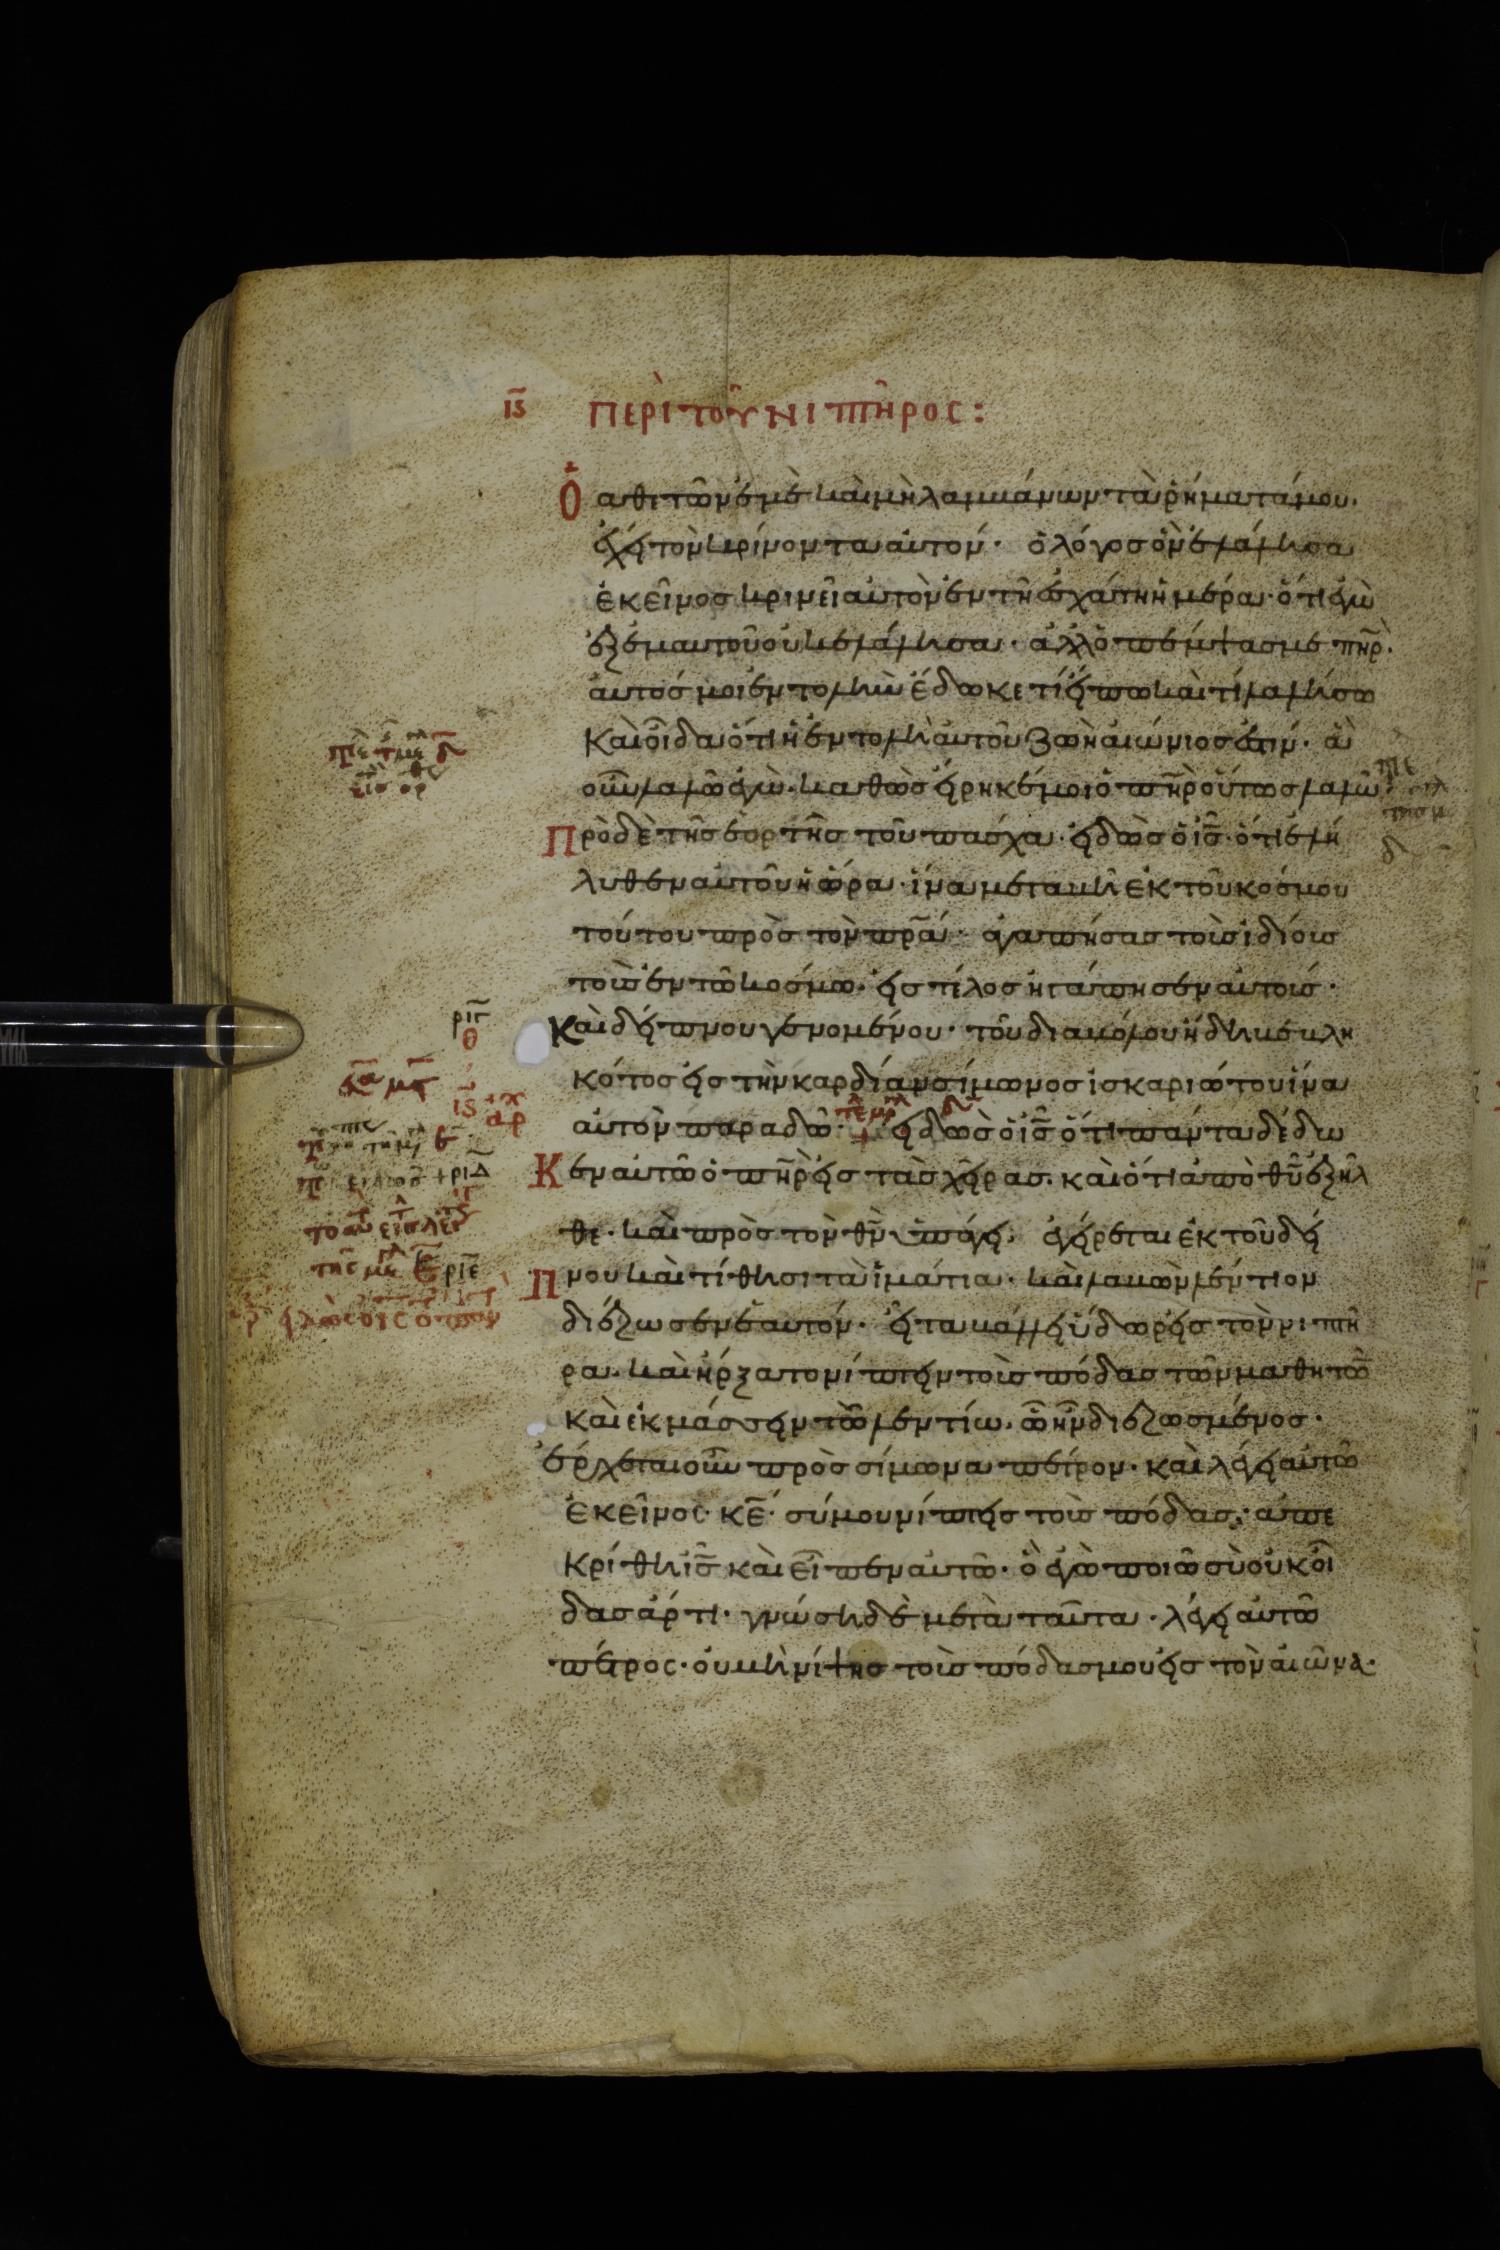 ιϛ περὶ τοῦ νιπτῆρος:
Ὁ αθετῶν ἐμὲ καὶ μὴ λαμβάνων τὰ ῥήματά μου·
ἔχει τὸν κρίνοντα αὐτόν· ὁ λόγος ὃν ἐλάλησα
ἐκεῖνος κρινεῖ αὐτὸν ἐν τῆ ἐσχάτη ἡμέρα· ὅτι ἐγὼ
ἐξ ἐμαυτοῦ οὐκ ἐλάλησα· ἀλλ ὁ πέμψας με πηρ·
αὐτός μοι ἐντολὴν ἔδωκε τί εἴπω καὶ τί λαλήσω
Καὶ οἶδα ὅτι ἡ ἐντολὴ αὐτοῦ ζωὴ αιώνιος ἐστίν· ἃ
οῦν λαλῶ ἐγὼ· καθὼς εἴρηκέ μοι ὁ πηρ οὕτως λαλῶ·
Πρὸ δὲ τῆς ἑορτῆς τοῦ πάσχα· εἰδὼς ὁ ις ὅτι ἐλή
λυθεν αὐτοῦ ἡ ὥρα· ἵνα μεταβῆ ἐκ τοῦ κόσμου
τούτου πρὸς τὸν πρα· ἀγαπήσας τοὺς ἰδίους
τοὺς ἐν τῶ κόσμω· εἰς τέλος ἠγάπησεν αὐτούς·
Καὶ δείπνου γενομένου· τοῦ διαβόλου ἤδη βεβλη
κότος εἰς τὴν καρδίαν σίμωνος ἰσκαριώτου ἵνα
αὐτὸν παραδῶ· + εἰδὼς ὁ ις ὅτι πάντα δέδω
Κεν αὐτῶ ὁ πηρ εἰς τὰς χεῖρας· καὶ ὅτι ἀπὸ θυ ἐξῆλ
θε· καὶ πρὸς τὸν θν ὑπάγει· ἐγείρεται ἐκ τοῦ δεί
Πνου καὶ τίθησι τὰ ἱμάτια· καὶ λαβὼν λέντιον
διέζωσεν ἑαυτόν· εἶτα βάλλει ὕδωρ εἰς τὸν νιπτῆ
ρα· καὶ ἤρξατο νίπτειν τοὺς πόδας τῶν μαθητῶ
καὶ ἐκμάσσειν τῶ λεντίω· ὧ ἦν διεζωσμένος·
ἔρχεται οὖν πρὸς σίμωνα πέτρον· καὶ λέγει αὐτῶ
ἐκεῖνος· κε· σύ μου νίπτεις τοὺς πόδας· ἀπε
κρίθη ις καὶ εἶπεν αὐτῶ· ὃ ἐγὼ ποιῶ σὺ οὐκ οἶ
δας ἄρτι· γνώση δὲ μετὰ ταῦτα· λέγει αὐτῶ
πέτρος· οὐ μὴ νίψης τοὺς πόδας μου εἰς τὸν αἰῶνα·
ριγ
θ
ιϛ
ριδ
ριε